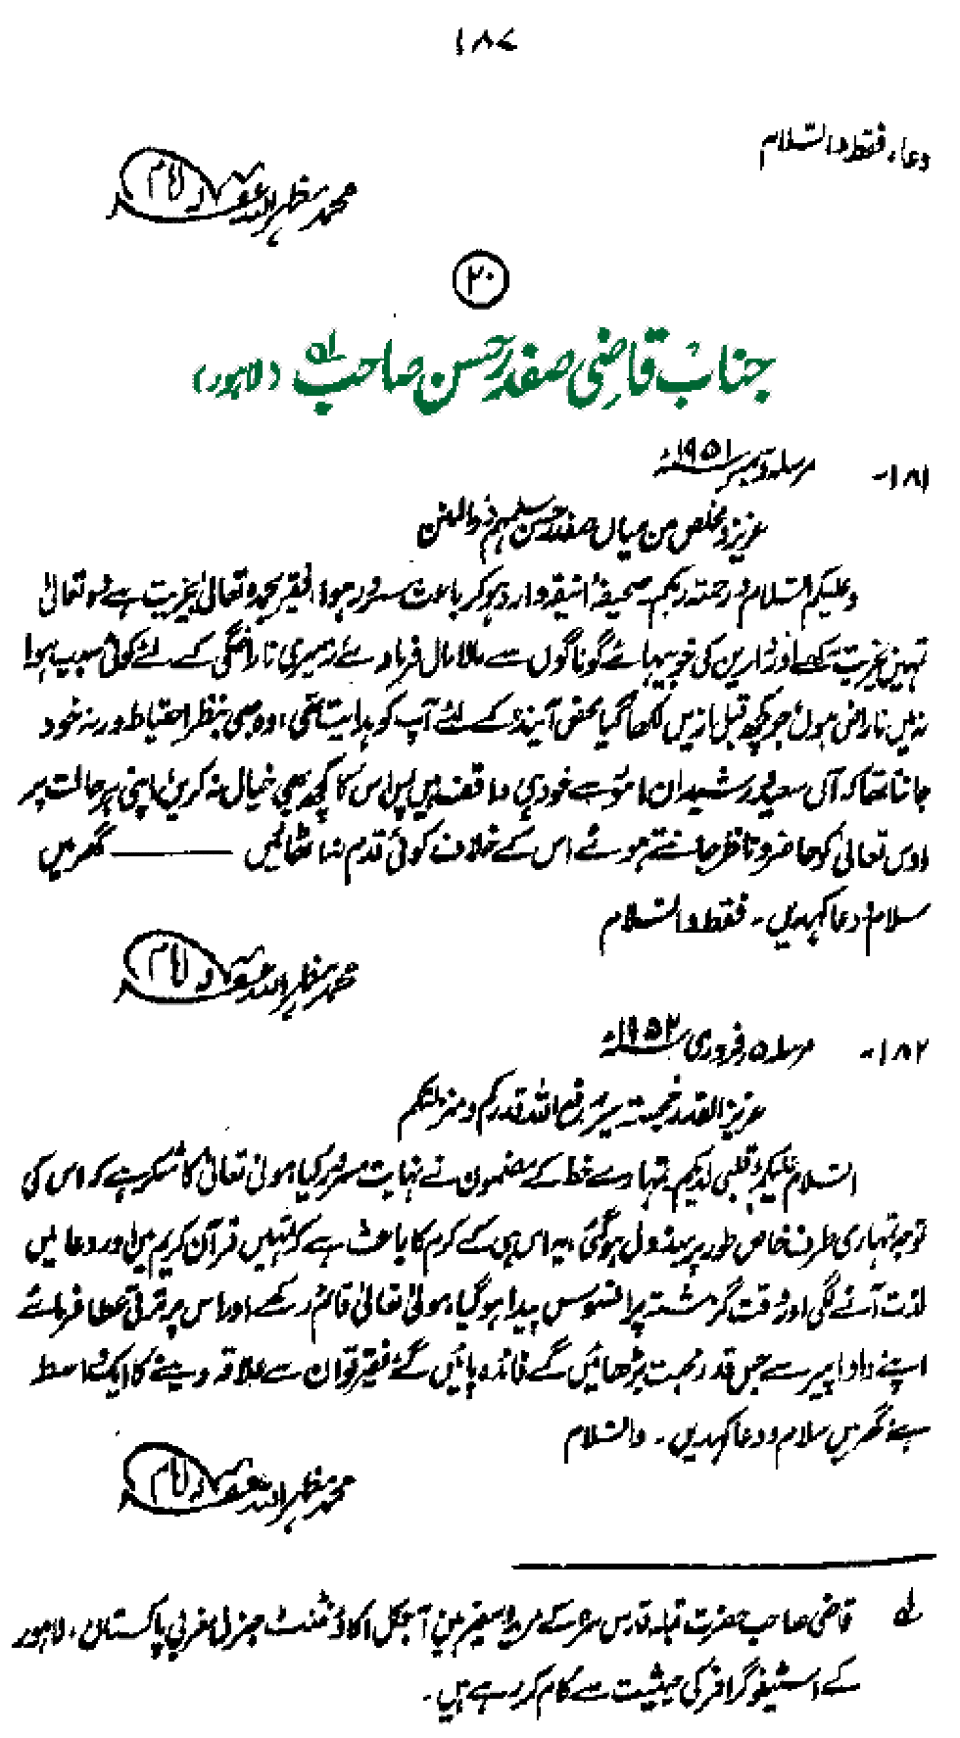 ۱۸۷
دعا، فقط والسّلام
محمد مظہر اللہ غفرلہ امام
۲۰
جناب قاضی صفدر حسن صاحب لہ (لاہور)
۱۸۱- مرسلہ دسمبر ۱۹۵۱ء
عزیز و مخلص من میاں صفدر حسن سلمہم ذوالمنن
وعلیکم السّلام ورحمتہ ربکم۔ صحیفۂ انیقہ وارد ہو کر باعث سرور ہوا۔ فقیر بحمدہ تعالیٰ بخیریت ہے مولیٰ تعالیٰ
تمہیں بخیریت رکھے اور دارین کی خوبیہائے گوناگوں سے مالا مال فرمادے نہ میری ناراضگی کے لئے کوئی سبب ہوا
نہ میں ناراض ہوں جو کچھ قبل ازیں لکھا گیا محض آیندہ کے لئے آپ کو ہدایت تھی اور وہ بھی بنظر احتیاط ورنہ خود
جانتا تھا کہ آں سعید و رشید ان امور سے خود ہی واقف ہیں پس اس کا کچھ بھی خیال نہ کریں اپنی ہر حالت پر
اوس تعالیٰ کو حاضر و ناظر جانتے ہوئے اس کے خلاف کوئی قدم نہ اٹھائیں ——— گھر میں
سلام و دعا کہدیں۔ فقط والسّلام
محمد مظہر اللہ غفرلہ امام
۱۸۲- مرسلہ ۵ فروری ۱۹۵۲ء
عزیز القدر خجستہ سیر رفع اللہ قدرکم و منزلتکم
السّلام علیکم وقلبی لدیکم۔ تمہارے خط کے مضمون نے نہایت مسرور کیا مولیٰ تعالیٰ کا شکر ہے کہ اس کی
توجہ تمہاری طرف خاص طور پر مبذول ہو گئی، یہ اس ہی کے کرم کا باعث ہے کہ تمہیں قرآن کریم میں اور دعا میں
لذت آنے لگی اور وقت گزشتہ پر افسوس پیدا ہو گیا، مولیٰ تعالیٰ قائم رکھے اور اس پر ترقی عطا فرمائے
اپنے دادا پیر سے جس قدر محبت بڑھائیں گے فائدہ پائیں گے فقیر تو ان سے علاقہ دینے کا ایک واسطہ
ہے گھر میں سلام و دعا کہدیں۔ والسّلام
محمد مظہر اللہ غفرلہ امام
لہ قاضی صاحب حضرت قبلہ قدس سرہ کے مرید و سفیر ہیں آجکل اکاؤنٹنٹ جنرل مغربی پاکستان، لاہور
کے اسٹینوگرافر کی حیثیت سے کام کر رہے ہیں۔